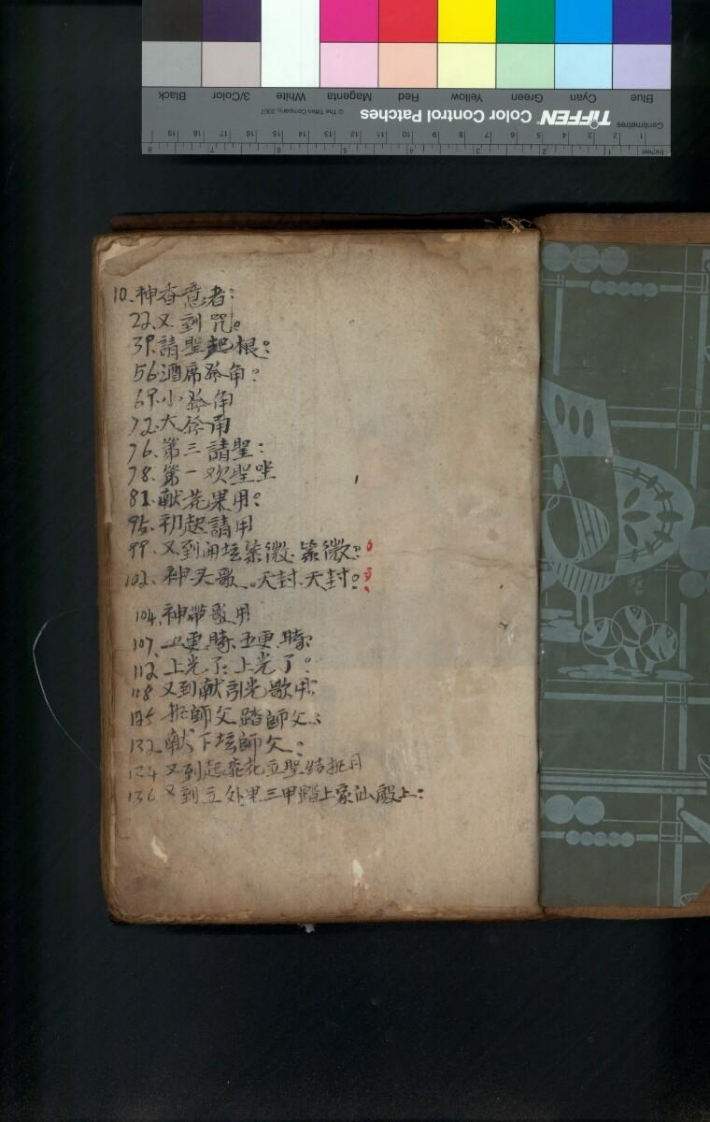 Blue Cyan Green Yellow Red Magenta White 3/Color Black
TIFFEN Color Control Patches © The Tiffen Company, 2007
Centimetres
Inches
10.神香意者:
22.又到咒。
39.請聖起根:
56酒席
69.小
72.大
76.第三請聖:
78.第一欢聖坐
81.献花果用:
95.初起請用
99.又到用坛紫微.紫微:
102.神头歌.天封.天封:
104.神帶歌用
107.五更.時:
112.上光了:上光了:
118又到献引光歌用:
125.師父踏師父:
132.献下坛師父:
134又到起 立聖
136又到立外甲三甲 上家仙殿上: